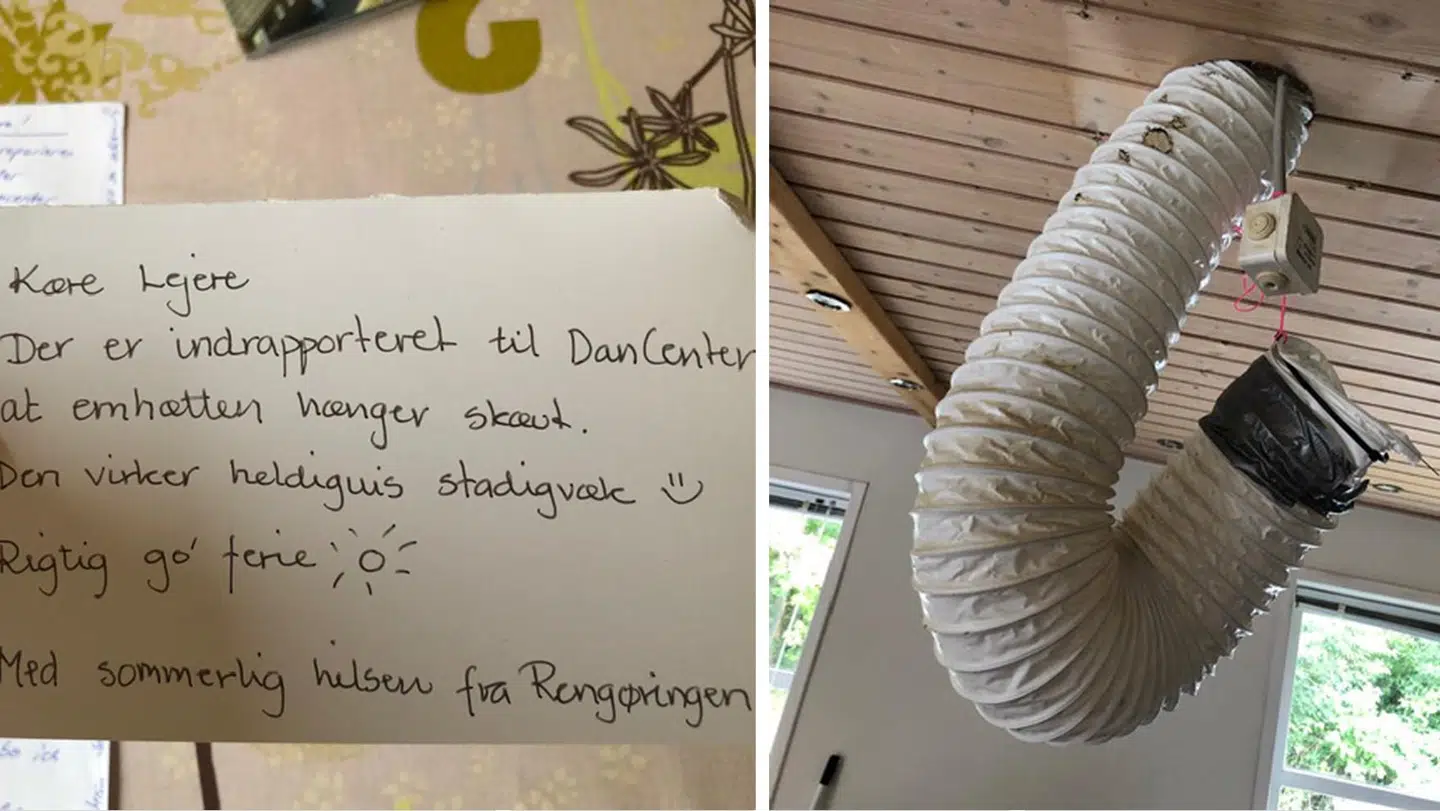 Kære Lejere
Der er indrapporteret til DanCenter
at emhætten hænger skævt.
Den virker heldigvis stadigvæk
Rigtig go' ferie
Med sommerlig hilsen fra Rengøringen